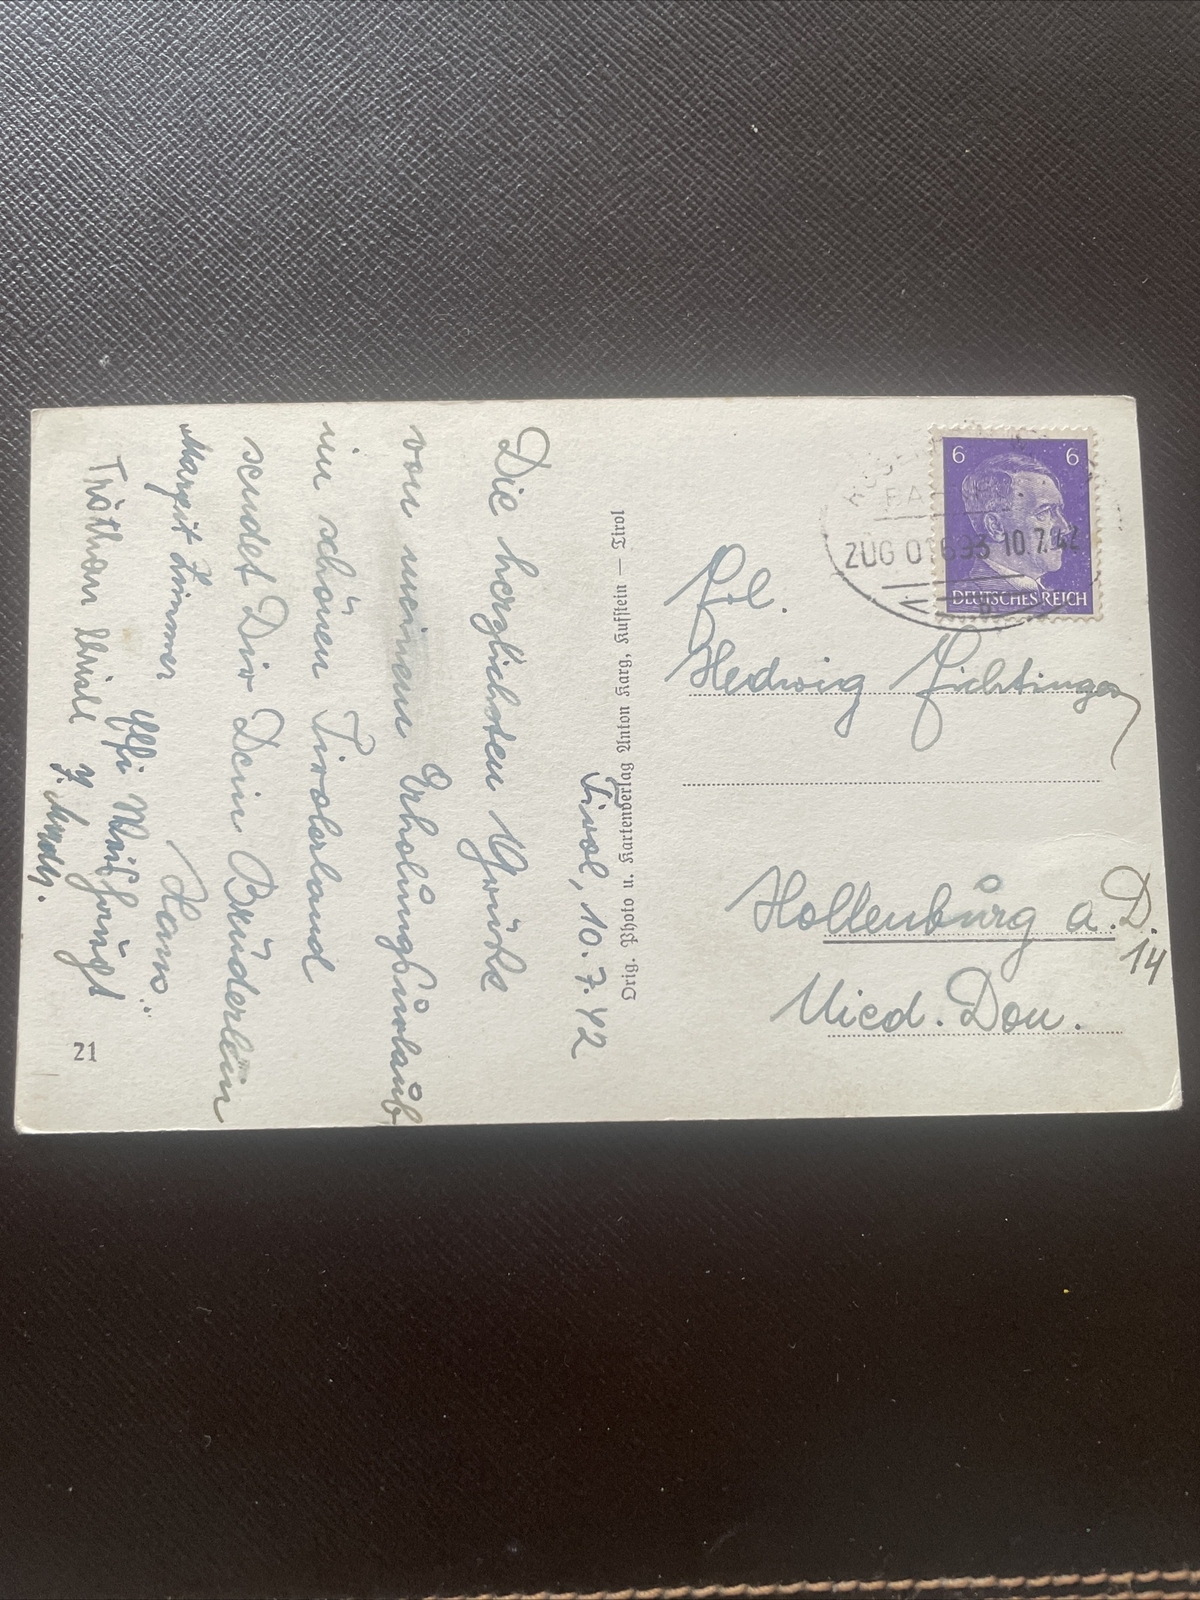 Tirol, 10.7.42
Die herzlichsten Grüße
von meinem Erholungsurlaub
im schönen Tirolerland
sendet Dir Dein Brüderlein
Hans.
Margit Zimmer
21
Orig. Photo u. Kartenverlag Anton Karg, Kufstein — Tirol
6 6
DEUTSCHES REICH
ZUG 01693 10.7.42
Frl.
Hedwig Fichtinger
Hollenburg a. D.
14
Nied. Don.